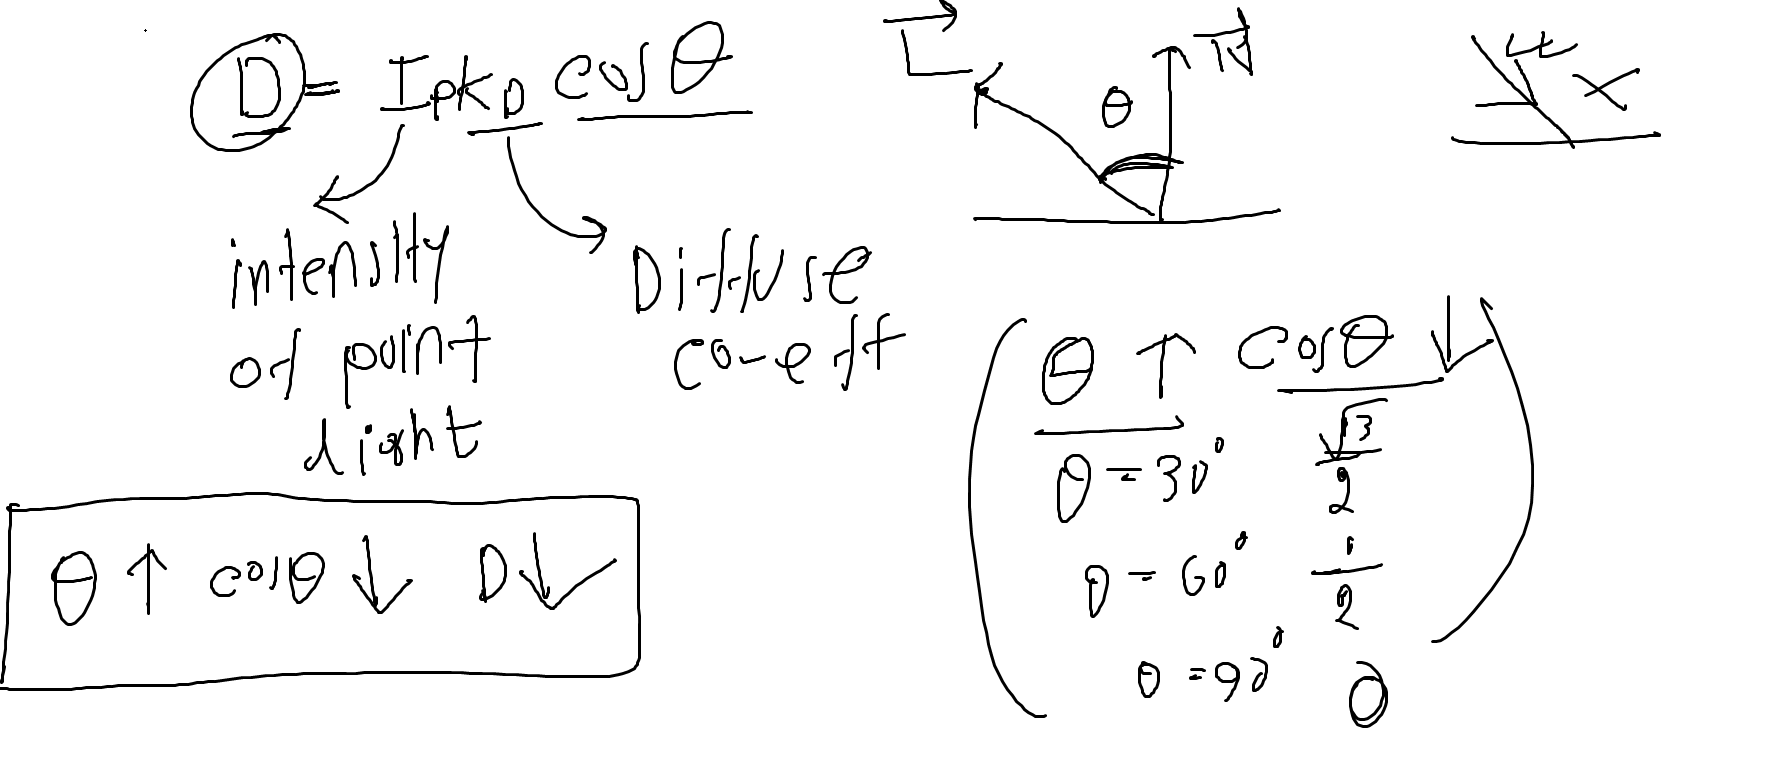 D = IpkD cosθ
intensity
of point
light
Diffuse
co-eff
L
θ
N
θ ↑ cosθ ↓
θ = 30° √3/2
θ = 60° 1/2
θ = 90° 0
θ ↑ cosθ ↓ D ↓